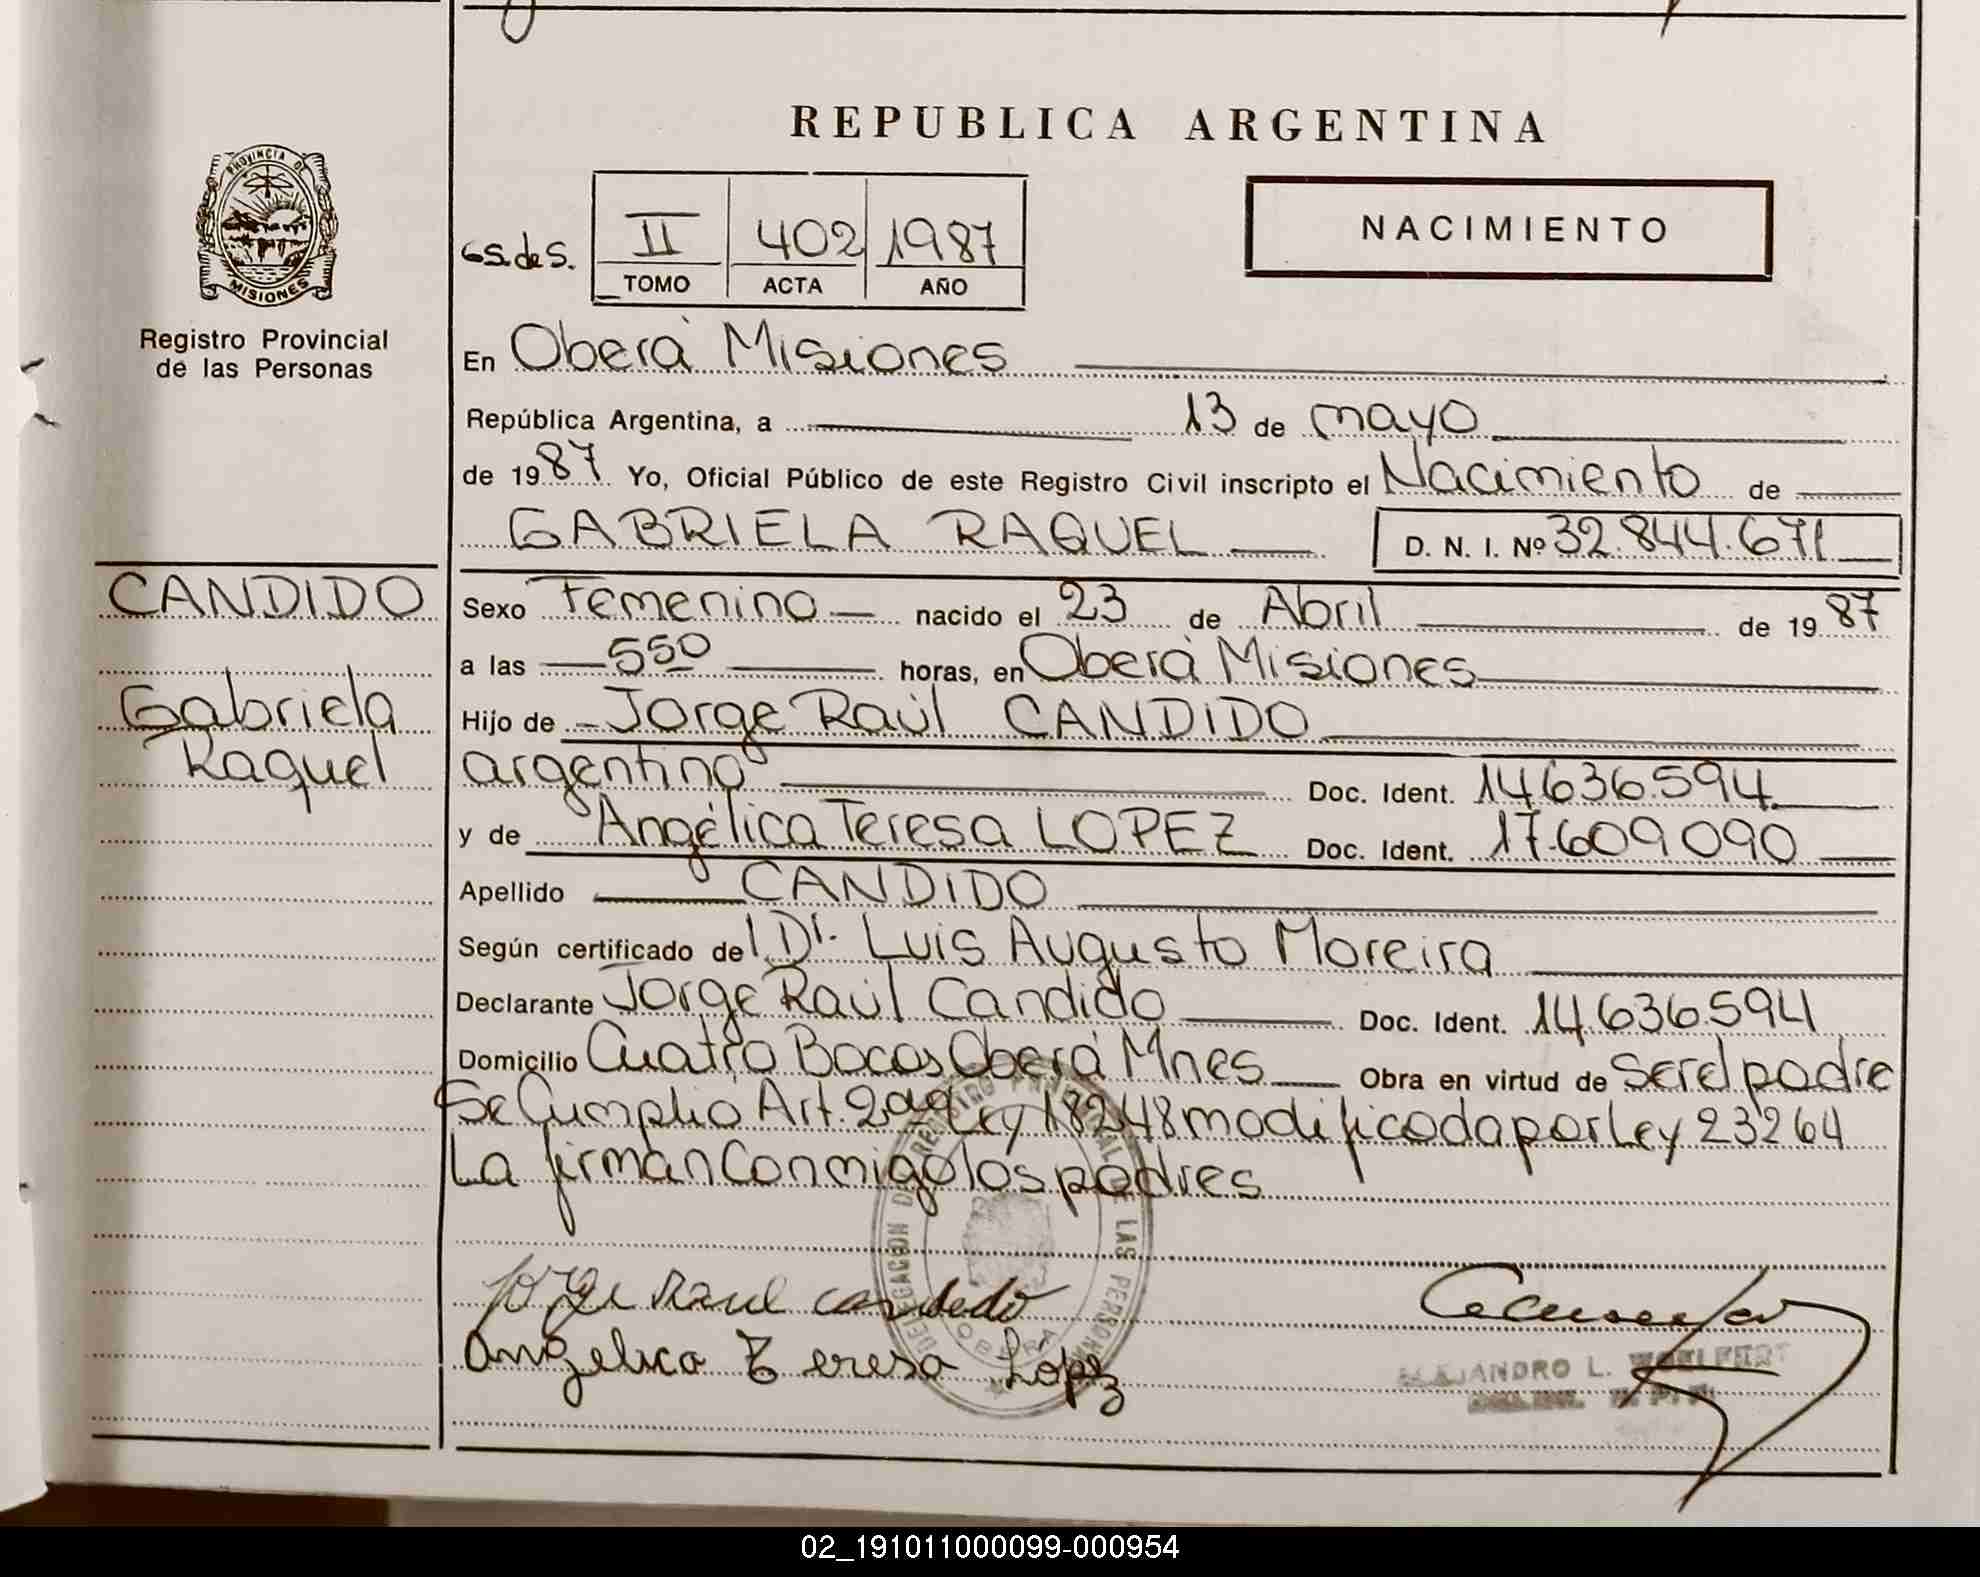 REPUBLICA ARGENTINA
PROVINCIA DE
MISIONES
Registro Provincial
de las Personas
NACIMIENTO
II 402 1987
TOMO ACTA AÑO
En Oberá Misiones
República Argentina, a 13 de mayo
de 1987 Yo, Oficial Público de este Registro Civil inscripto el Nacimiento de
GABRIELA RAQUEL D. N. I. Nº 32.844.671
CANDIDO
Gabriela
Raquel
Sexo Femenino nacido el 23 de Abril de 1987
a las 5 50 horas, en Oberá Misiones
Hijo de Jorge Raúl CANDIDO
argentino Doc. Ident. 14.636.594
y de Angélica Teresa LOPEZ Doc. Ident. 17.609.090
Apellido CANDIDO
Según certificado del Dr. Luis Augusto Moreira
Declarante Jorge Raúl Candido Doc. Ident. 14.636.594
Domicilio Cuatro Bocas Oberá Mnes Obra en virtud de ser el padre
Se Cumplio Art. 2do Ley 18248 modificada por Ley 23264
La firman Conmigo los padres
DELEGACION DEL REGISTRO PROVINCIAL DE LAS PERSONAS
OBERA
Jorge Raul candido
Angelica Teresa López
ALEJANDRO L.
02_191011000099-000954